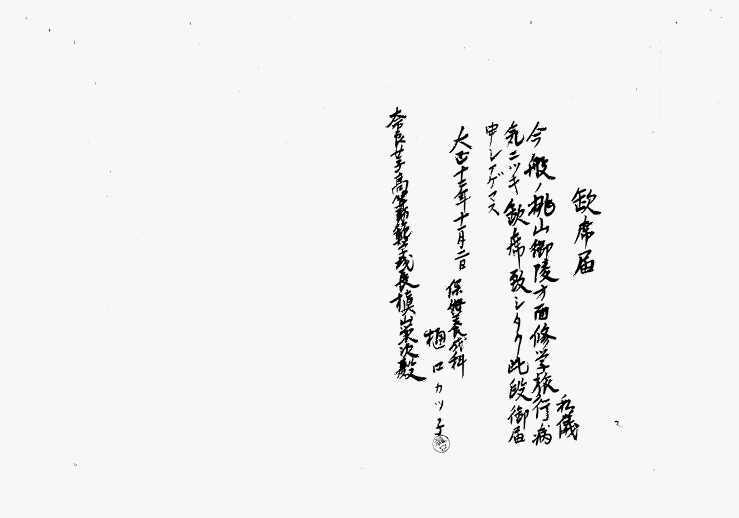 欠席届
私儀
今般ノ桃山御陵方面修学旅行病
気ニツキ欠席致シタク此段御届
申シアゲマス
大正十二年十一月二日
保姆養成科
樋口カツ子
奈良女子高等師範学校長槙山栄次殿